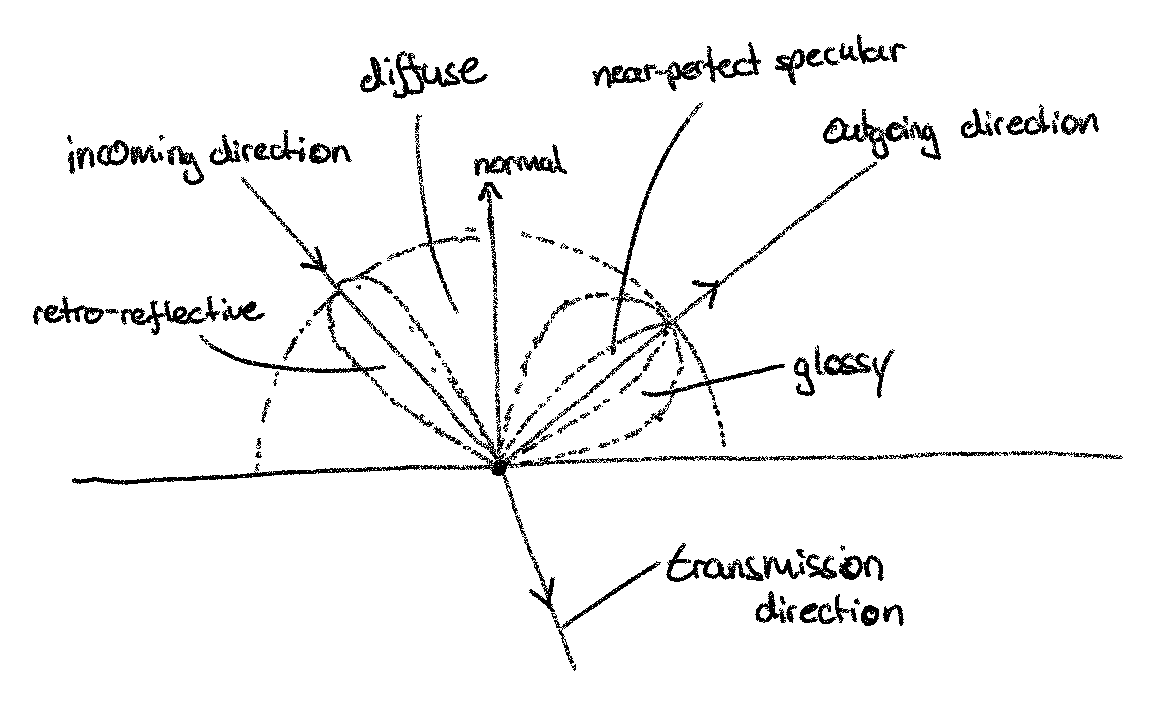 diffuse
near-perfect specular
incoming direction
normal
outgoing direction
retro-reflective
glossy
transmission
direction